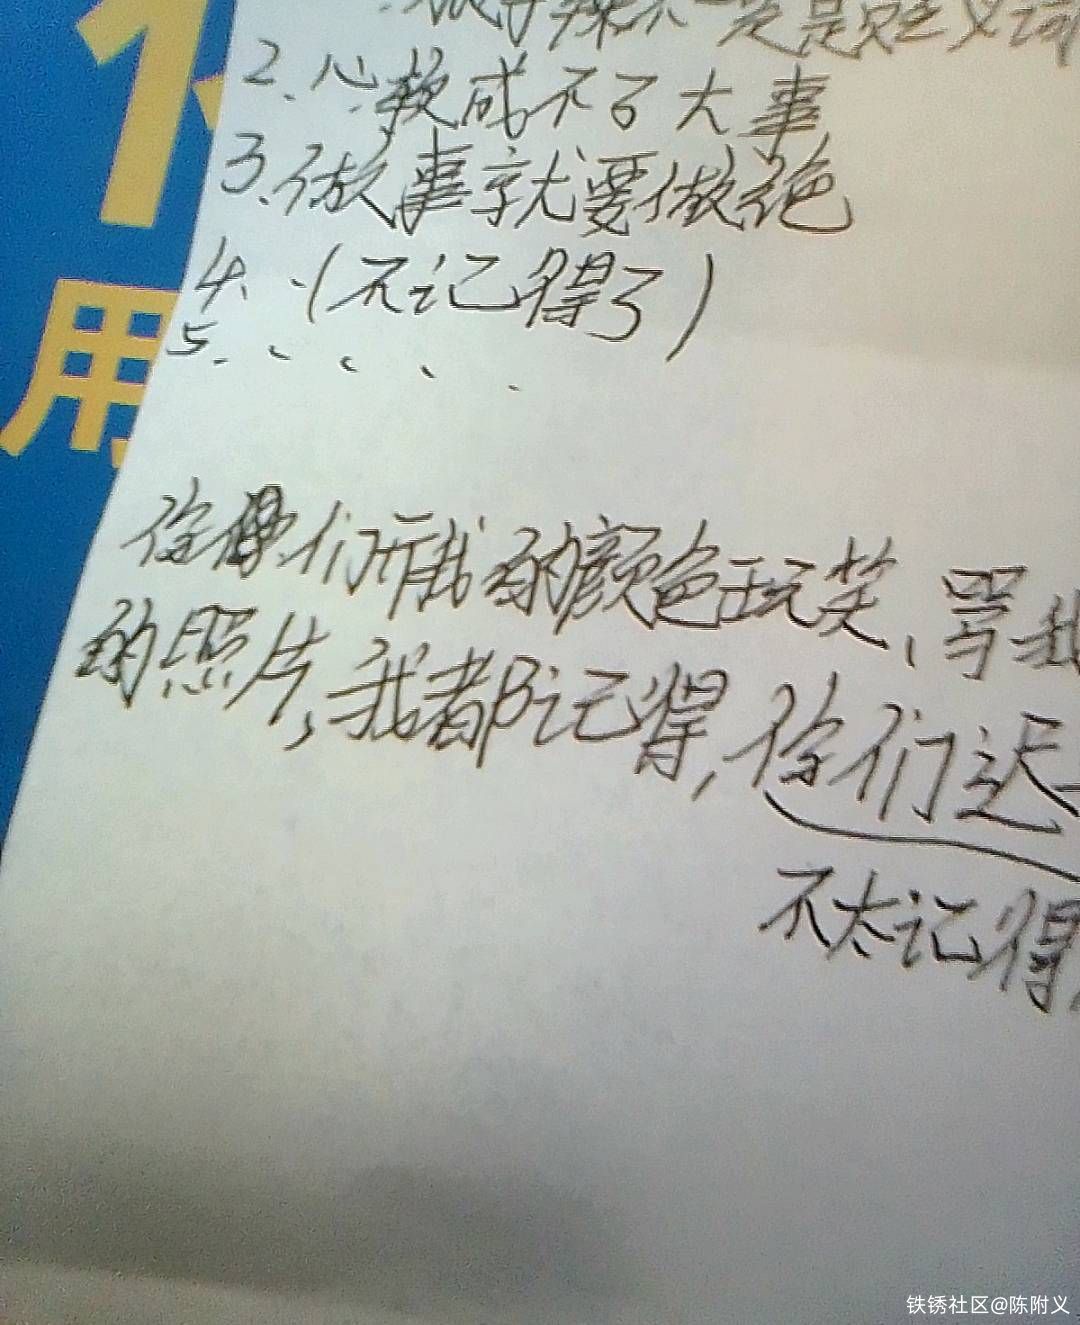 一定是贬义词
2、心软成不了大事
3.做事就要做绝
4、(不记得了)
5.、、、.
你们开我的颜色玩笑、骂我
的照片,我都记得,你们迟
不太记得
用
铁锈社区@陈附义